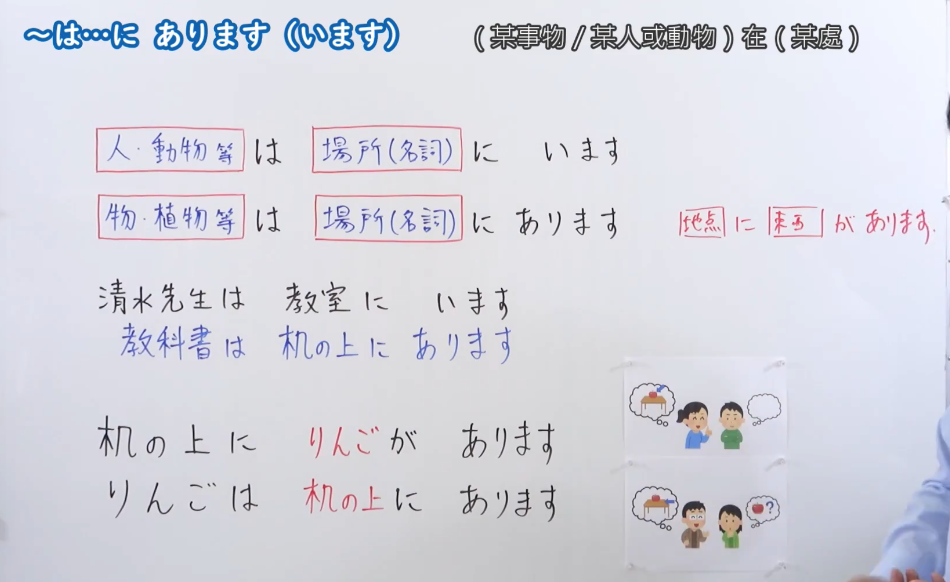 ～は…に あります（います）
（某事物／某人或動物）在（某處）
人・動物等 は 場所(名詞) に います
物・植物等 は 場所(名詞) に あります
地点 に 東西 が あります.
清水先生は 教室に います
教科書は 机の上に あります
机の上に りんごが あります
りんごは 机の上に あります
?